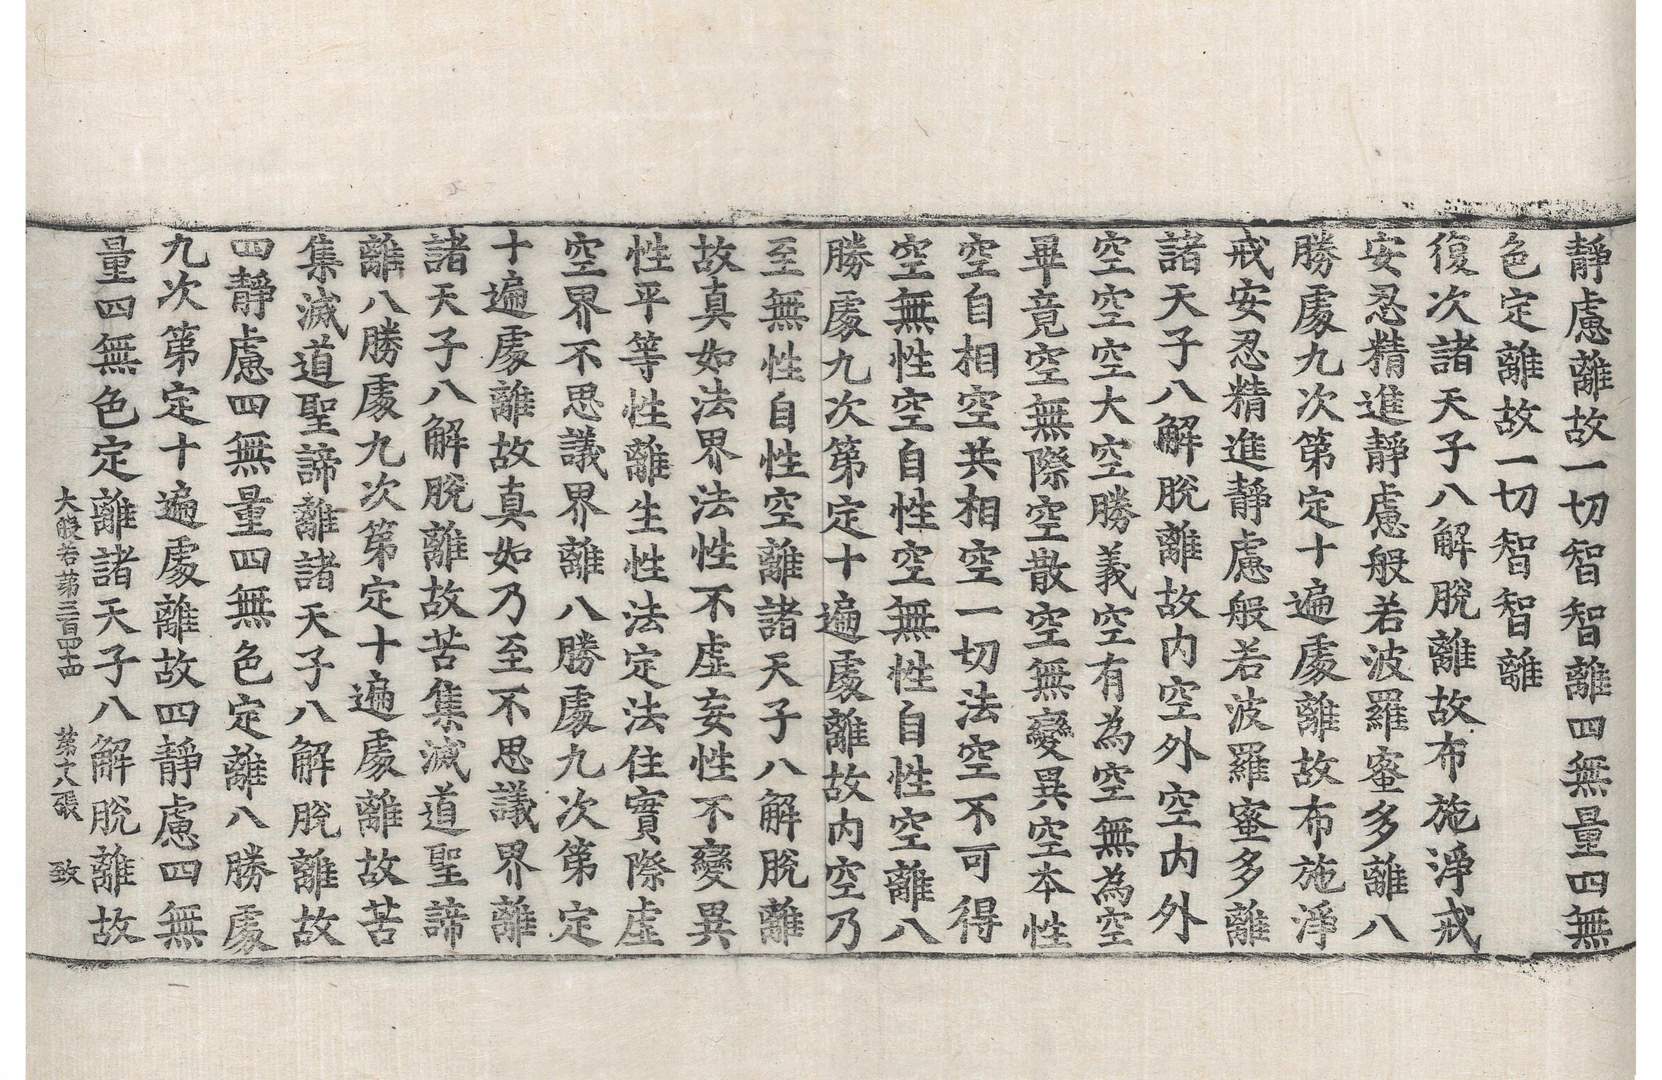 靜慮離故一切智智離四無量四無
色定離故一切智智離
復次諸天子八解脫離故布施淨戒
安忍精進靜慮般若波羅蜜多離八
勝處九次第定十遍處離故布施淨
戒安忍精進靜慮般若波羅蜜多離
諸天子八解脫離故內空外空內外
空空空大空勝義空有為空無為空
畢竟空無際空散空無變異空本性
空自相空共相空一切法空不可得
空無性空自性空無性自性空離八
勝處九次第定十遍處離故內空乃
至無性自性空離諸天子八解脫離
故真如法界法性不虛妄性不變異
性平等性離生性法定法住實際虛
空界不思議界離八勝處九次第定
十遍處離故真如乃至不思議界離
諸天子八解脫離故苦集滅道聖諦
離八勝處九次第定十遍處離故苦
集滅道聖諦離諸天子八解脫離故
四靜慮四無量四無色定離八勝處
九次第定十遍處離故四靜慮四無
量四無色定離諸天子八解脫離故
大般若第三百四十四 第十八張 致